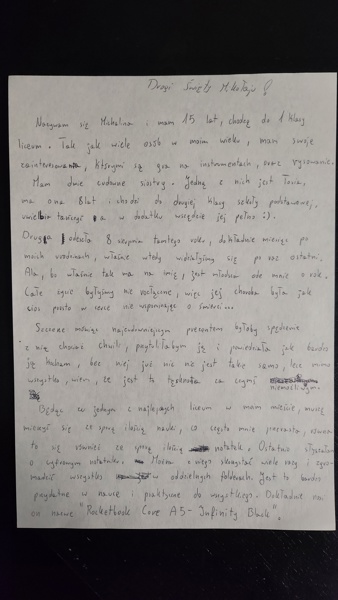 Drogi Święty Mikołaju
Nazywam się Michalina i mam 15 lat, chodzę do 1 klasy
liceum. Tak jak wiele osób w moim wieku, mam swoje
zainteresowania, którymi są gra na instrumentach, oraz rysowanie.
Mam dwie cudowne siostry. Jedną z nich jest Tosia,
ma ona 8 lat i chodzi do drugiej klasy szkoły podstawowej,
uwielbia tańczyć a w dodatku wszędzie jej pełno :).
Druga odeszła 8 sierpnia tamtego roku, dokładnie miesiąc po
moich urodzinach, właśnie wtedy widziałyśmy się po raz ostatni.
Ala, bo właśnie tak ma na imię, jest młodsza ode mnie o rok.
Całe życie byłyśmy nierozłączne, więc jej choroba była jak
cios prosto w serce nie wspominając o śmierci...
Szczerze mówiąc najcudowniejszym prezentem byłoby spędzenie
z nią chociaż chwili, przytuliłabym ją i powiedziała jak bardzo
ją kocham, bez niej już nic nie jest takie samo, lecz mimo
wszystko, wiem, że jest to tęsknota za czymś
niemożliwym.
Będąc w jednym z najlepszych liceum w moim mieście, muszę
mierzyć się ze sporą ilością nauki, co często mnie przerasta,
to się również ze sporą ilością notatek. Ostatnio
o wybranym notatniku. Można z niego skorzystać wiele razy i
wszystko w oddzielnych folderach. Jest to bardzo
przydatne w nauce i praktyczne do wszystkiego. Dokładnie
nazwę "Rocketbook Core A5 - Infinity Black".